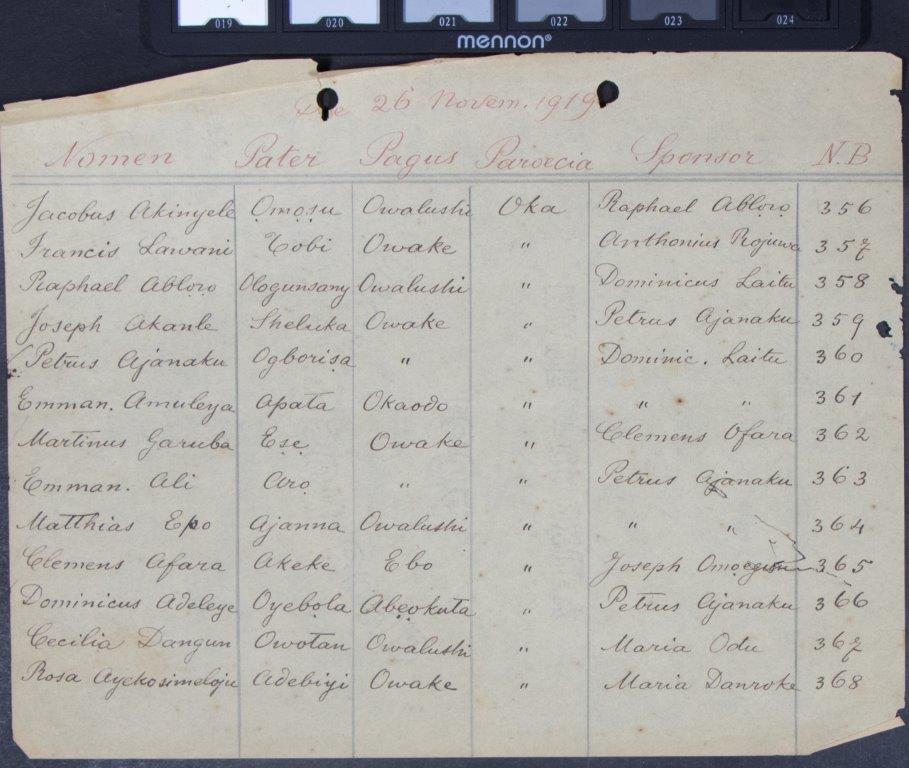 019 020 021 022 023 024
mennon®
Die 26 Novem. 1919
Nomen Pater Pagus Paroecia Sponsor N.B
Jacobus Akinyele Ọmọṣu Owalushi Oka Raphael Abloro 356
Francis Lawani Tobi Owake " Anthonius Rojuwa 357
Raphael Abloro Ologunsany Owalushi " Dominicus Laitu 358
Joseph Akanle Sheluka Owake " Petrus Ajanaku 359
Petrus Ajanaku Ogborisa " " Dominic. Laitu 360
Emman. Amuleya Apata Okaodo " " " 361
Martinus Garuba Eṣẹ Owake " Clemens Ofara 362
Emman. Ali Aro " " Petrus Ajanaku 363
Matthias Epo Ajanna Owalushi " " " 364
Clemens Afara Akeke Ebo " Joseph 365
Dominicus Adeleye Oyebola Abẹokuta " Petrus Ajanaku 366
Cecilia Dangun Owotan Owalushi " Maria Odu 367
Rosa Ayekosimeloju Adebiyi Owake " Maria Danroke 368